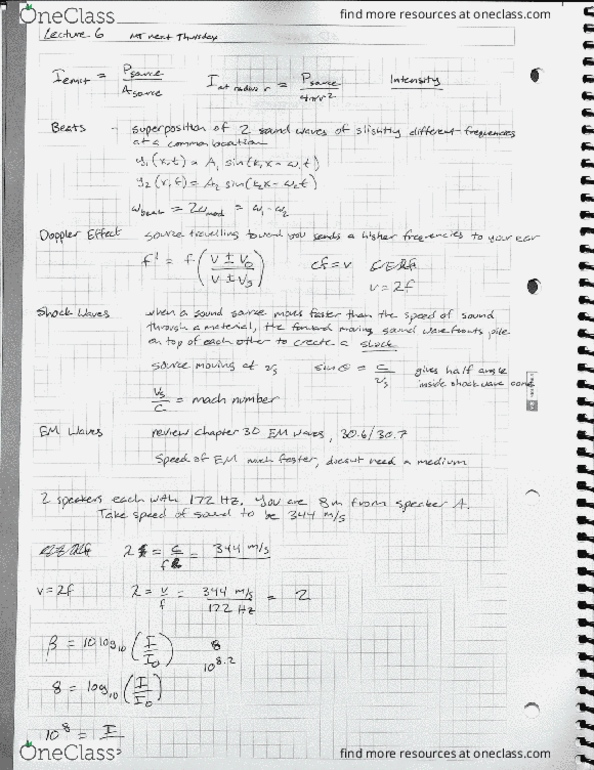 OneClass
find more resources at oneclass.com
Lecture 6 MT next Thursday
I emit = P source / A source I at radius r = P source / 4πr² Intensity
Beats - superposition of 2 sound waves of slightly different frequencies
at a common location
y₁(x,t) = A₁ sin(k₁x - ω₁t)
y₂(x,t) = A₂ sin(k₂x - ω₂t)
ω beat = 2ω mod = ω₁ - ω₂
Doppler Effect source travelling toward you sends a higher frequencies to your ear
f' = f (v ± v₀ / v ± vₛ) cf = v
v = λf
Shock Waves when a sound source moves faster than the speed of sound
through a material, the forward moving sound wavefronts pile
on top of each other to create a shock
source moving at vₛ sinθ = c / vₛ gives half angle
inside shock wave cone
vₛ / c = mach number
EM Waves review chapter 30 EM waves, 30.6/30.7
Speed of EM much faster, doesnt need a medium
2 speakers each with 172 Hz. You are 8m from speaker A.
Take speed of sound to be 344 m/s
λ = c / f = 344 m/s
v = λf λ = v / f = 344 m/s / 172 Hz = 2
β = 10 log₁₀ (I / I₀) 8
10^8.2
8 = log₁₀ (I / I₀)
10⁸ = I
OneClass
find more resources at oneclass.com